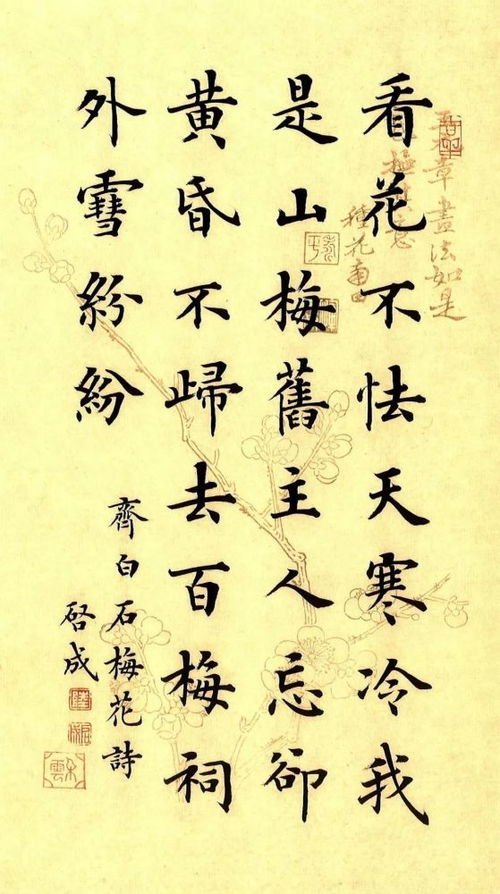 看花不怯天寒冷我
是山梅舊主人忘卻
黃昏不歸去百梅祠
外雪紛紛
齊白石梅花詩
啓成